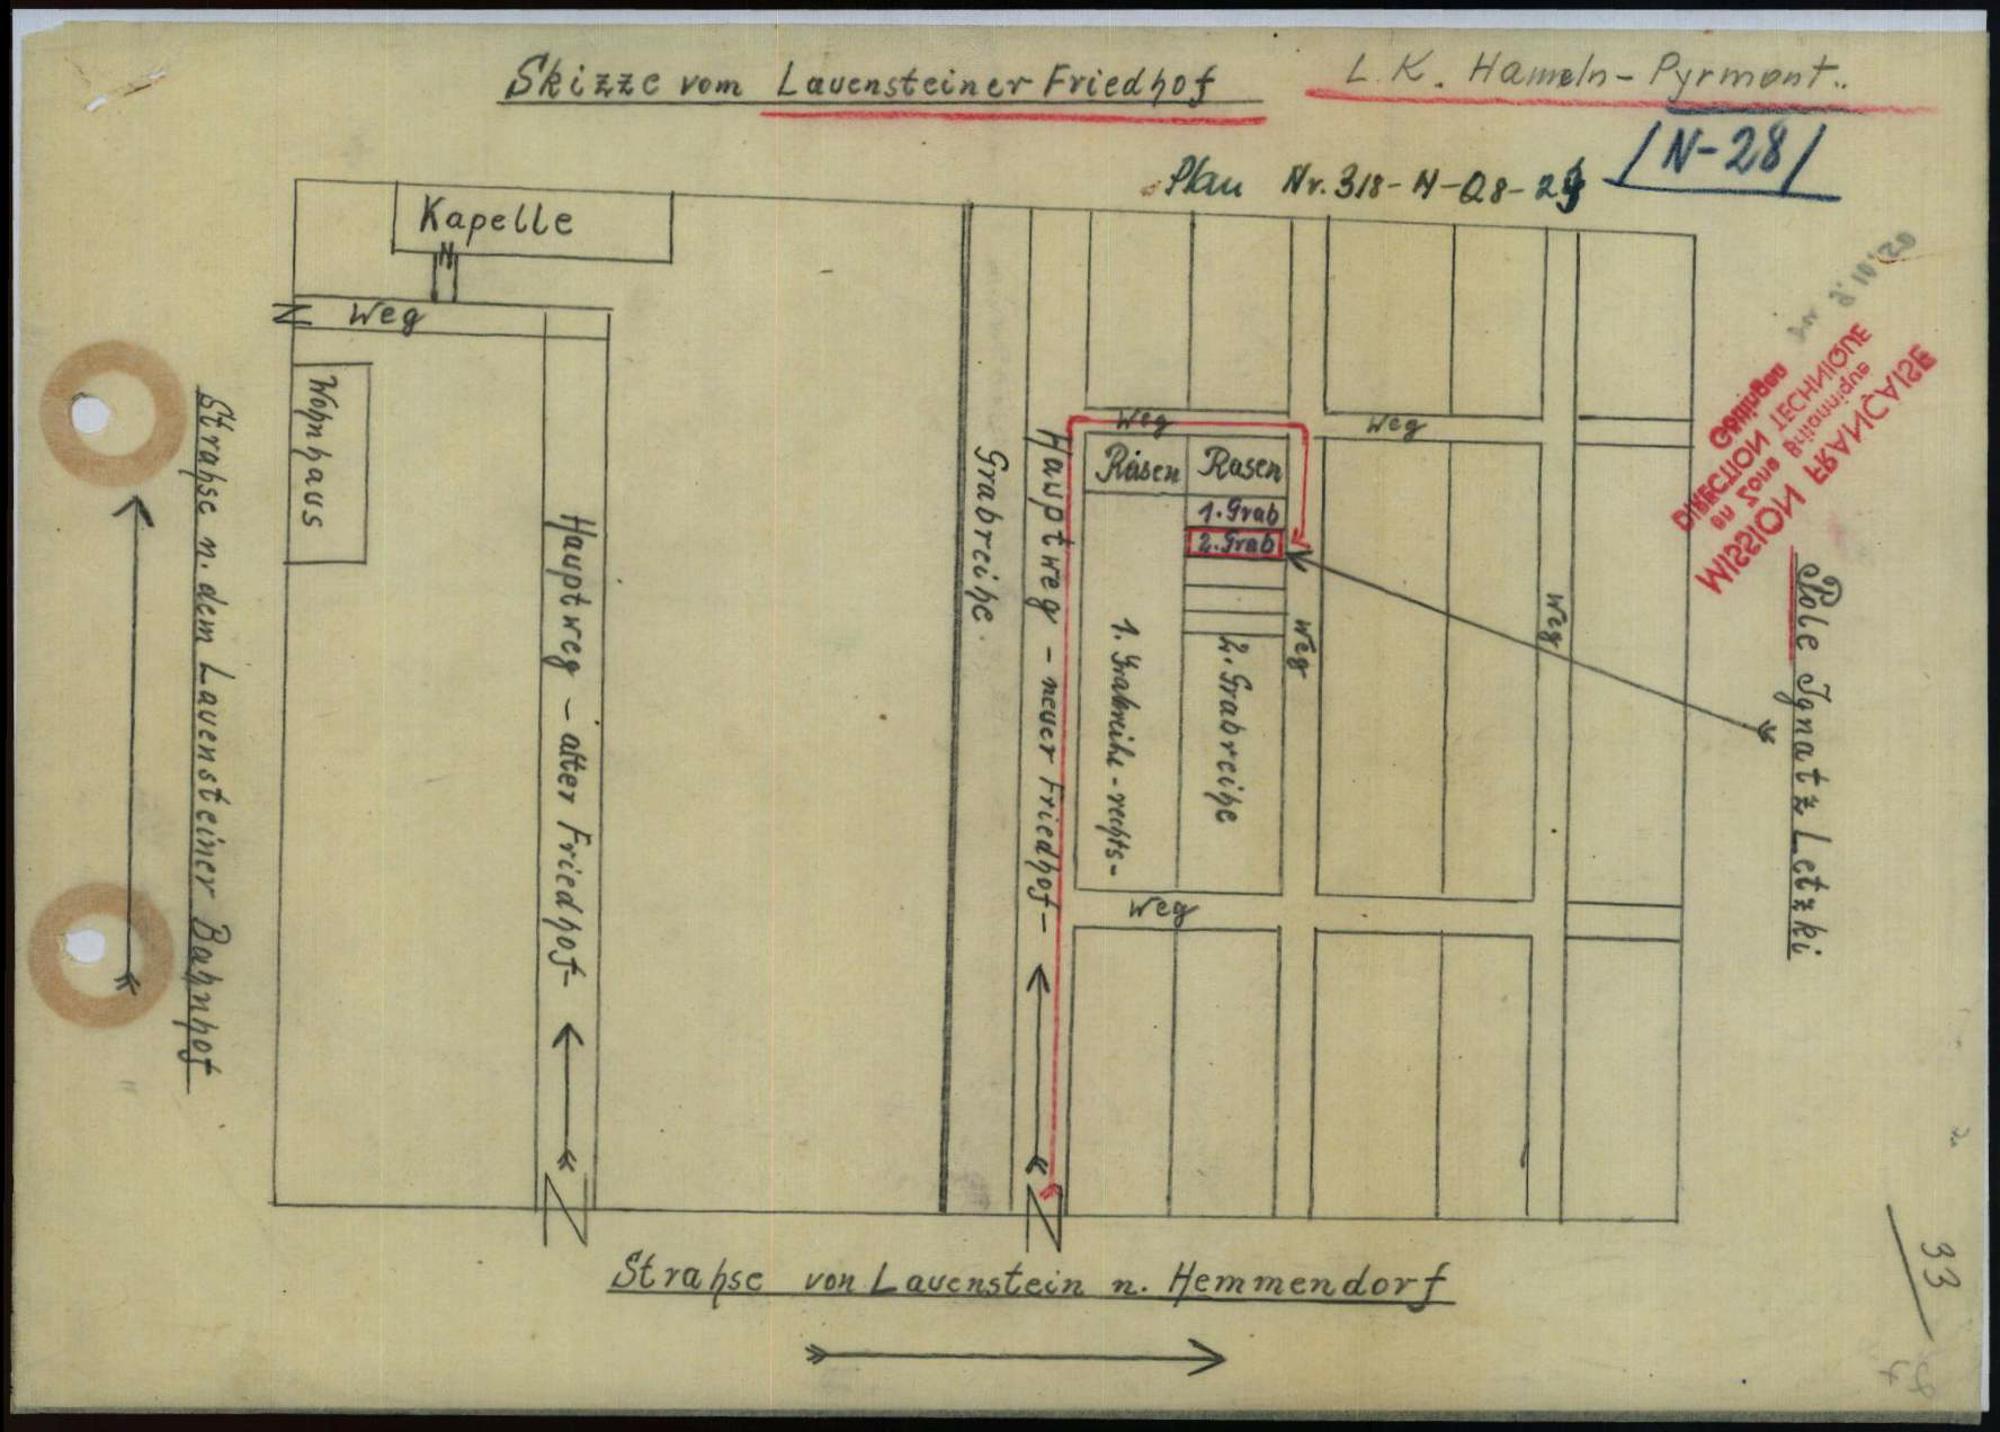 Skizze vom Lauensteiner Friedhof
L.K. Hameln-Pyrmont.
N-28
Plan Nr. 318-N-Q8-29
Kapelle
Weg
Wohnhaus
Strahse n. dem Lauensteiner Bahnhof
Hauptweg - alter Friedhof-
Grabreihe.
Hauptweg - neuer Friedhof-
Weg
Weg
Rasen
Rasen
1. Grab
2. Grab
1. Grabreihe - rechts-
2. Grabreihe
Weg
Weg
Weg
MISSION FRANÇAISE
en Zone Britannique
DIRECTION TECHNIQUE
Göttingen
Pole Ignatz Letzki
Strahse von Lauenstein n. Hemmendorf
33